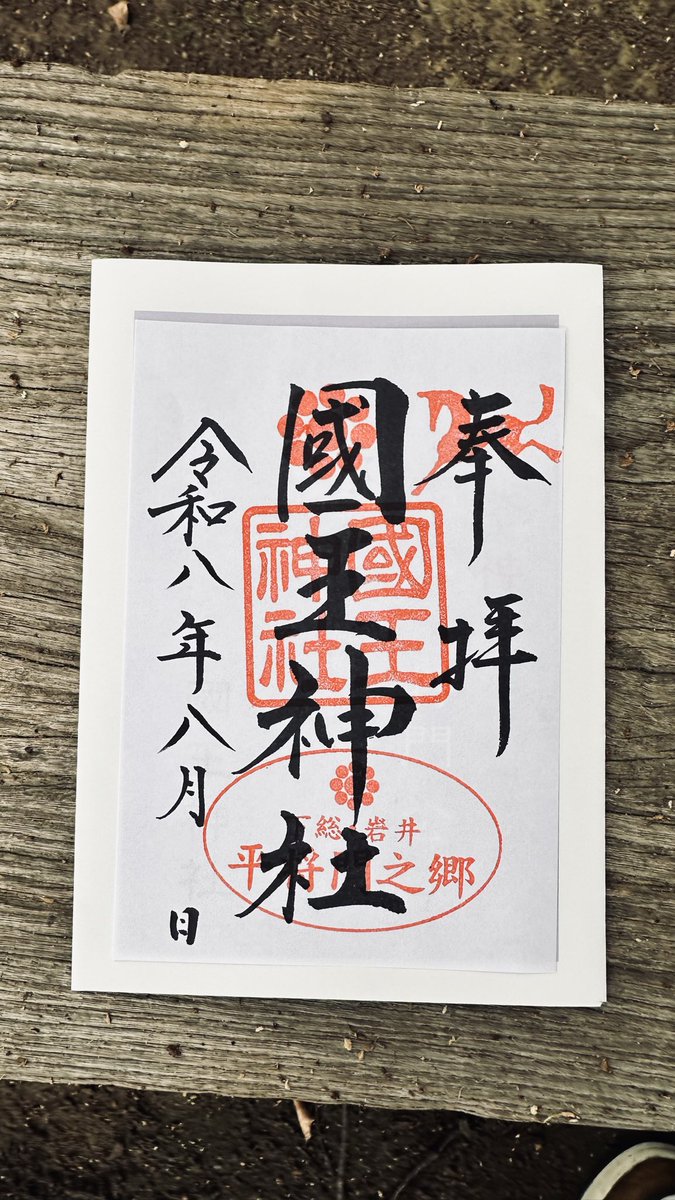 奉拝
國王神社
國王
神社
下総 岩井
平将門之郷
令和八年八月 日